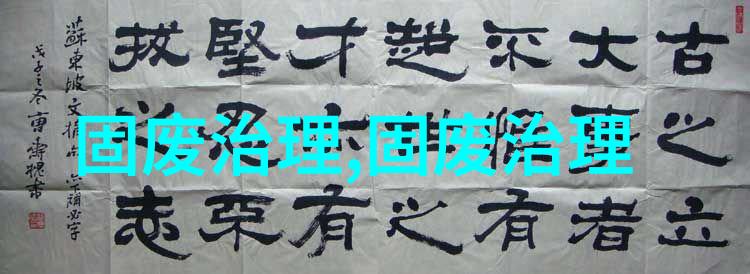 古之立
大事者
不惟有
超世之
才亦有
堅忍不
拔之志
蘇東坡文摘句 亦下漏必字
戊子之冬
固废治理,固废治理